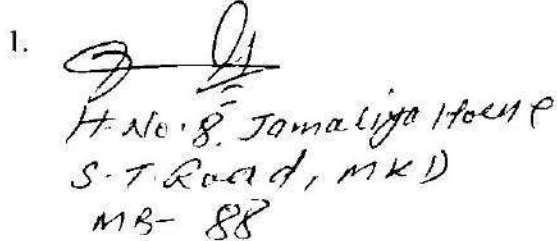 1.
H. No. 8. Jamaliya House
S. T. Road, MKD
MB- 88